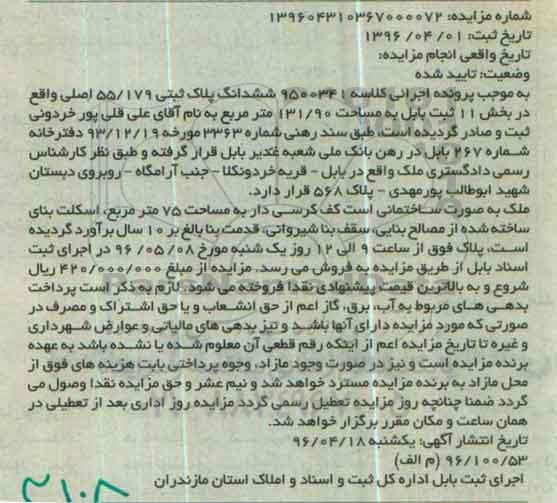 شماره مزایده: ۱۳۹۶۰۴۳۱۰۳۶۷۰۰۰۰۷۲
تاریخ ثبت: ۰۱ /۰۴ /۱۳۹۶
تاریخ واقعی انجام مزایده:
وضعیت: تایید شده
به موجب پرونده اجرائی کلاسه ۹۵۰۰۳۴۱ ششدانگ پلاک ثبتی ۵۵/۱۷۹ اصلی واقع
در بخش ۱۱ ثبت بابل به مساحت ۱۳۱/۹۰ متر مربع به نام آقای علی قلی پور خردونی
ثبت و صادر گردیده است، طبق سند رهنی شماره ۳۳۶۳ مورخه ۹۳/۱۲/۱۹ دفترخانه
شماره ۲۶۷ بابل در رهن بانک ملی شعبه غدیر بابل قرار گرفته و طبق نظر کارشناس
رسمی دادگستری ملک واقع در بابل - قریه خردونکلا - جنب آرامگاه - روبروی دبستان
شهید ابوطالب پورمهدی - پلاک ۵۶۸ قرار دارد.
ملک به صورت ساختمانی است کف کرسی دار به مساحت ۷۵ متر مربع، اسکلت بنای
ساخته شده از مصالح بنایی، سقف بنا شیروانی، قدمت بنا بالغ بر ۱۰ سال برآورد گردیده
است، پلاک فوق از ساعت ۹ الی ۱۲ روز یک شنبه مورخ ۰۸/ ۰۵/ ۹۶ در اجرای ثبت
اسناد بابل از طریق مزایده به فروش می رسد. مزایده از مبلغ ۴۲۰/۰۰۰/۰۰۰ ریال
شروع و به بالاترین قیمت پیشنهادی نقدا فروخته می شود. لازم به ذکر است پرداخت
بدهی های مربوط به آب، برق، گاز اعم از حق انشعاب و یا حق اشتراک و مصرف در
صورتی که مورد مزایده دارای آنها باشد و نیز بدهی های مالیاتی و عوارض شهرداری
و غیره تا تاریخ مزایده اعم از اینکه رقم قطعی آن معلوم شده یا نشده باشد به عهده
برنده مزایده است و نیز در صورت وجود مازاد، وجوه پرداختی بابت هزینه های فوق از
محل مازاد به برنده مزایده مسترد خواهد شد و نیم عشر و حق مزایده نقدا وصول می
گردد ضمنا چنانچه روز مزایده تعطیل رسمی گردد مزایده روز اداری بعد از تعطیلی در
همان ساعت و مکان مقرر برگزار خواهد شد.
تاریخ انتشار آگهی: یکشنبه ۹۶/۰۴/۱۸
۹۶/۱۰۰/۵۳ (م الف)
اجرای ثبت بابل اداره کل ثبت و اسناد و املاک استان مازندران
۲۱۰۸